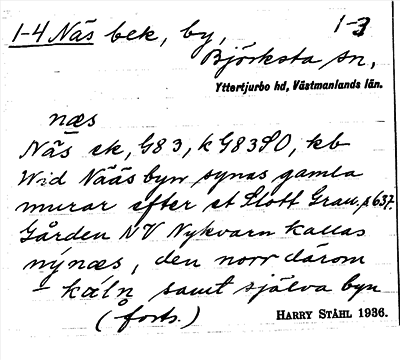 1-4 Näs bek, by, 1-3
Björksta sn,
Yttertjurbo hd, Västmanlands län.
næs
Näs ek, G83, kG83SO, kb
Wid Nääs byn synas gamla
murar efter et Slott Grau. s 637.
Gården NV Nykvarn kallas
nýnæs, den norr därom
- kɑ́ln, samt själva byn
(forts.)
HARRY STÅHL 1936.